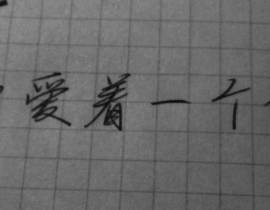 爱着一个